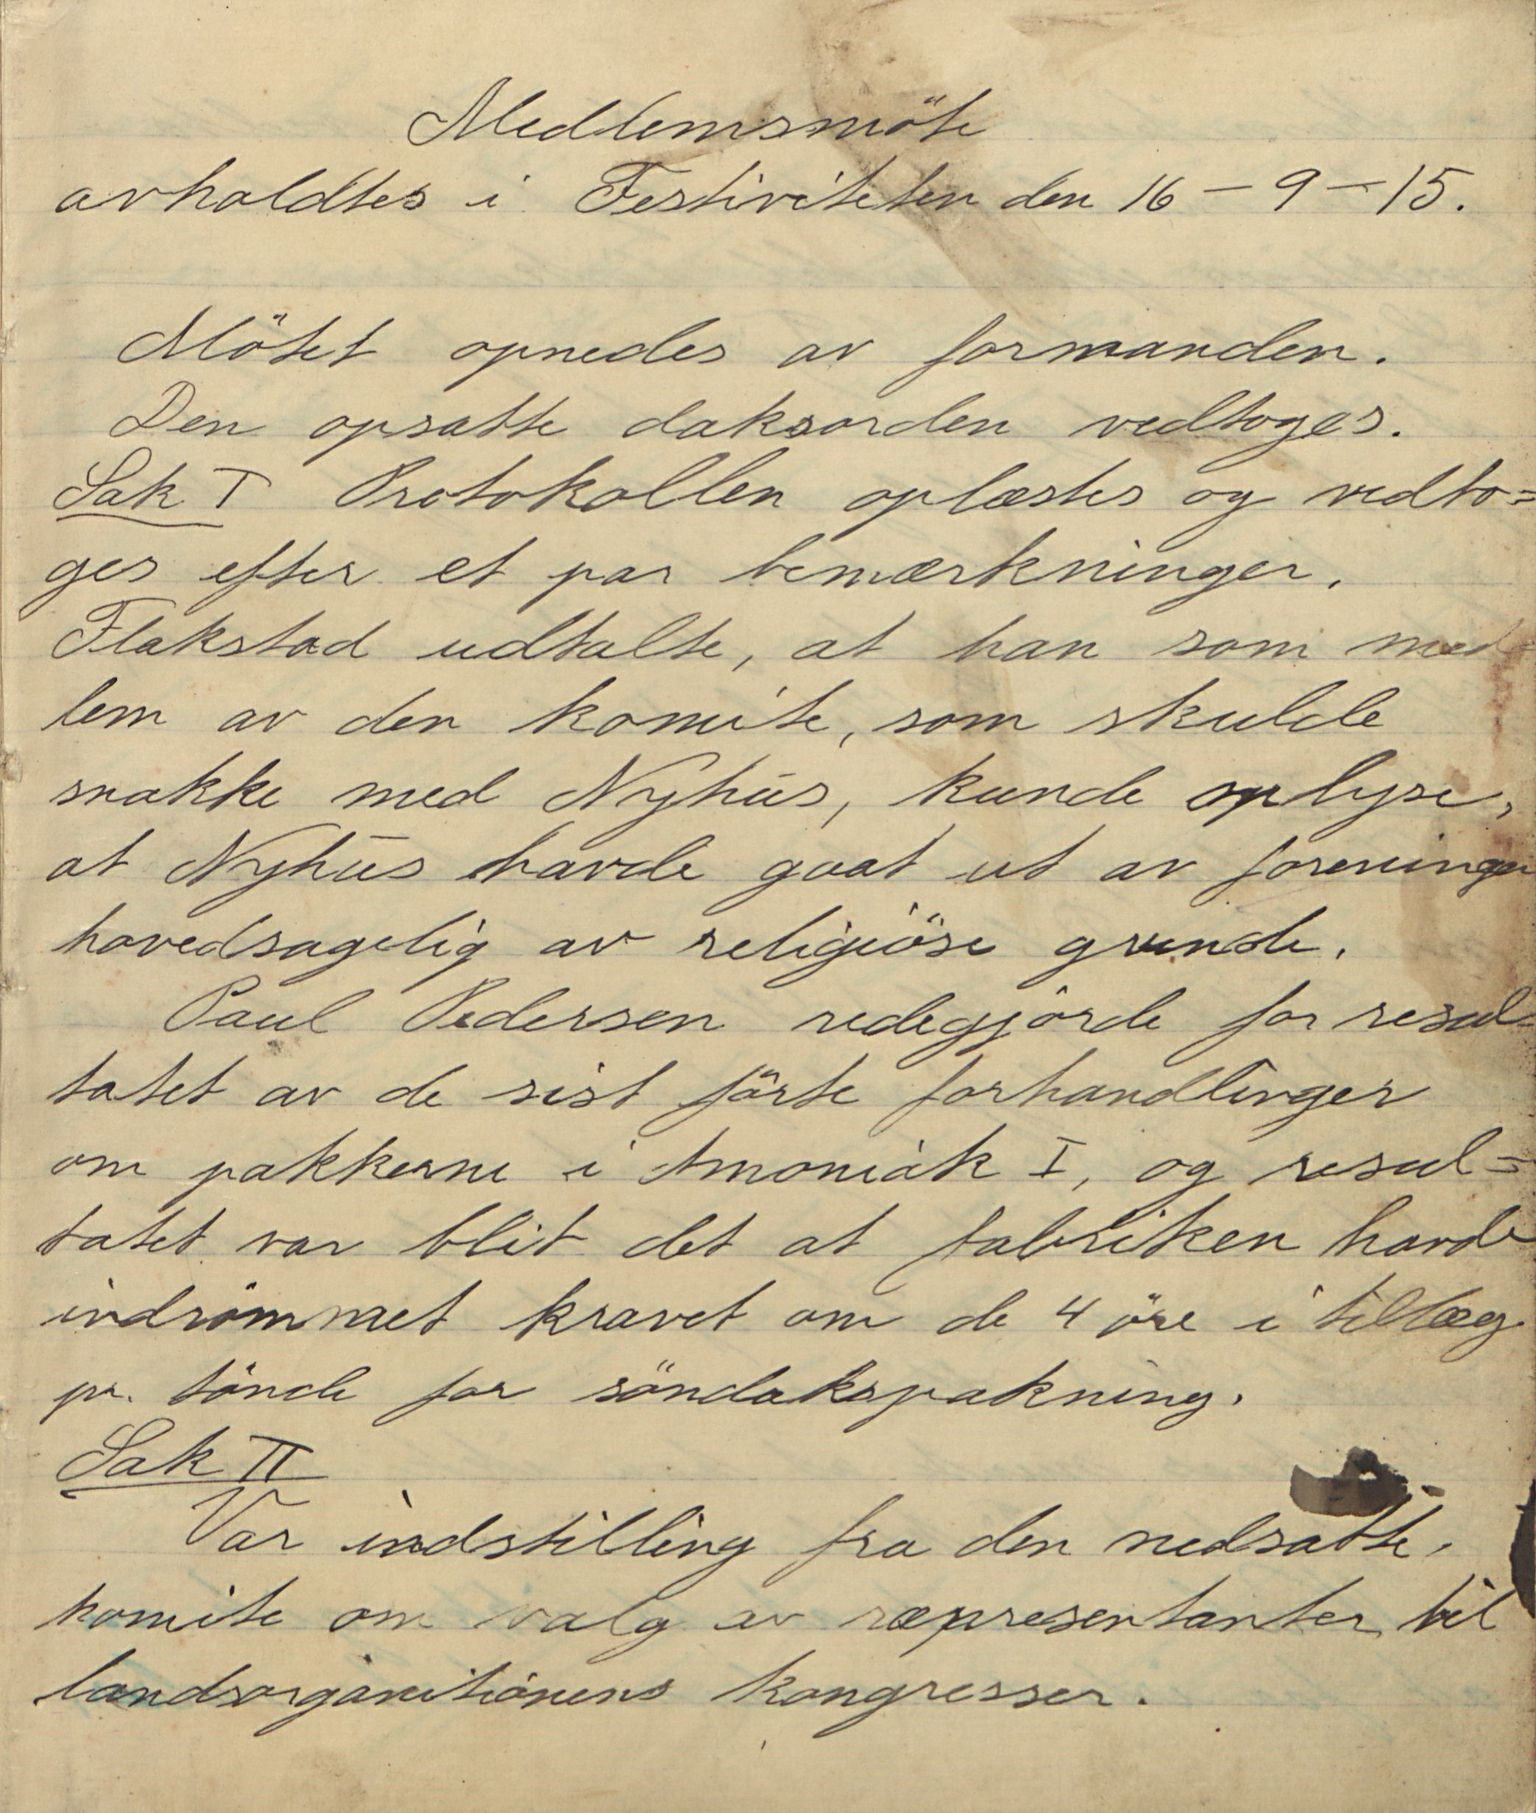 Medlemsmöte
avholdtes i Festiviteten den 16 – 9 – 15.
Mötet opnedes av formanden.
Den opsatte daksorden vedtoges.
Sak I Protokollen oplæstes og vedto=
ges efter et par bemærkninger.
Flakstad udtalte, at han som med-
lem av den komite, som skulde
snakke med Nyhus, kunde oplyse,
at Nyhus havde gaat ut av foreningen
hovedsagelig av religiöse grunde.
Paul Pedersen redegjörde for resul-
tatet av de sist förte forhandlinger
om pakkerne i Amoniak I, og resul=
tatet var blit det at fabriken havde
indrömmet kravet om de 4 öre i tillæg
pr. tönde for söndakspakning.
Sak II
Var indstilling fra den nedsatte
komite om valg av representanter til
landsorganitionens kongresser.